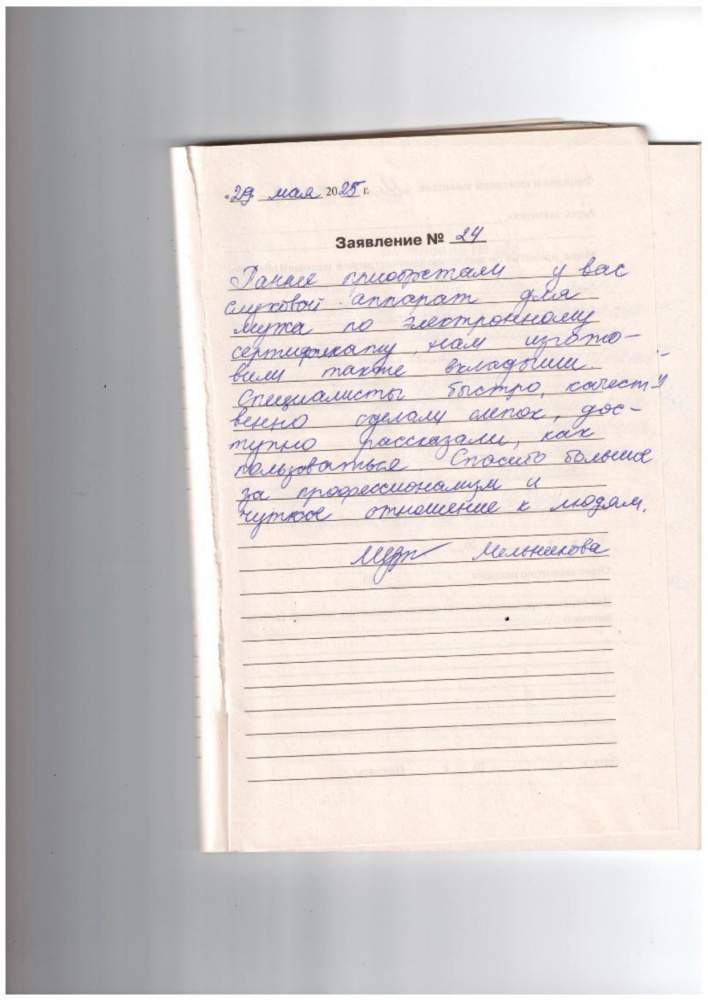 «29 мая 2025 г.
Заявление № 24
Ранее приобретали у вас
слуховой аппарат для
мужа по электронному
сертификату, нам изгото-
вили также вкладыши.
Специалисты быстро, качест-
венно сделали слепок, дос-
тупно рассказали, как
пользоваться. Спасибо большое
за профессионализм и
чуткое отношение к людям.
Мельникова